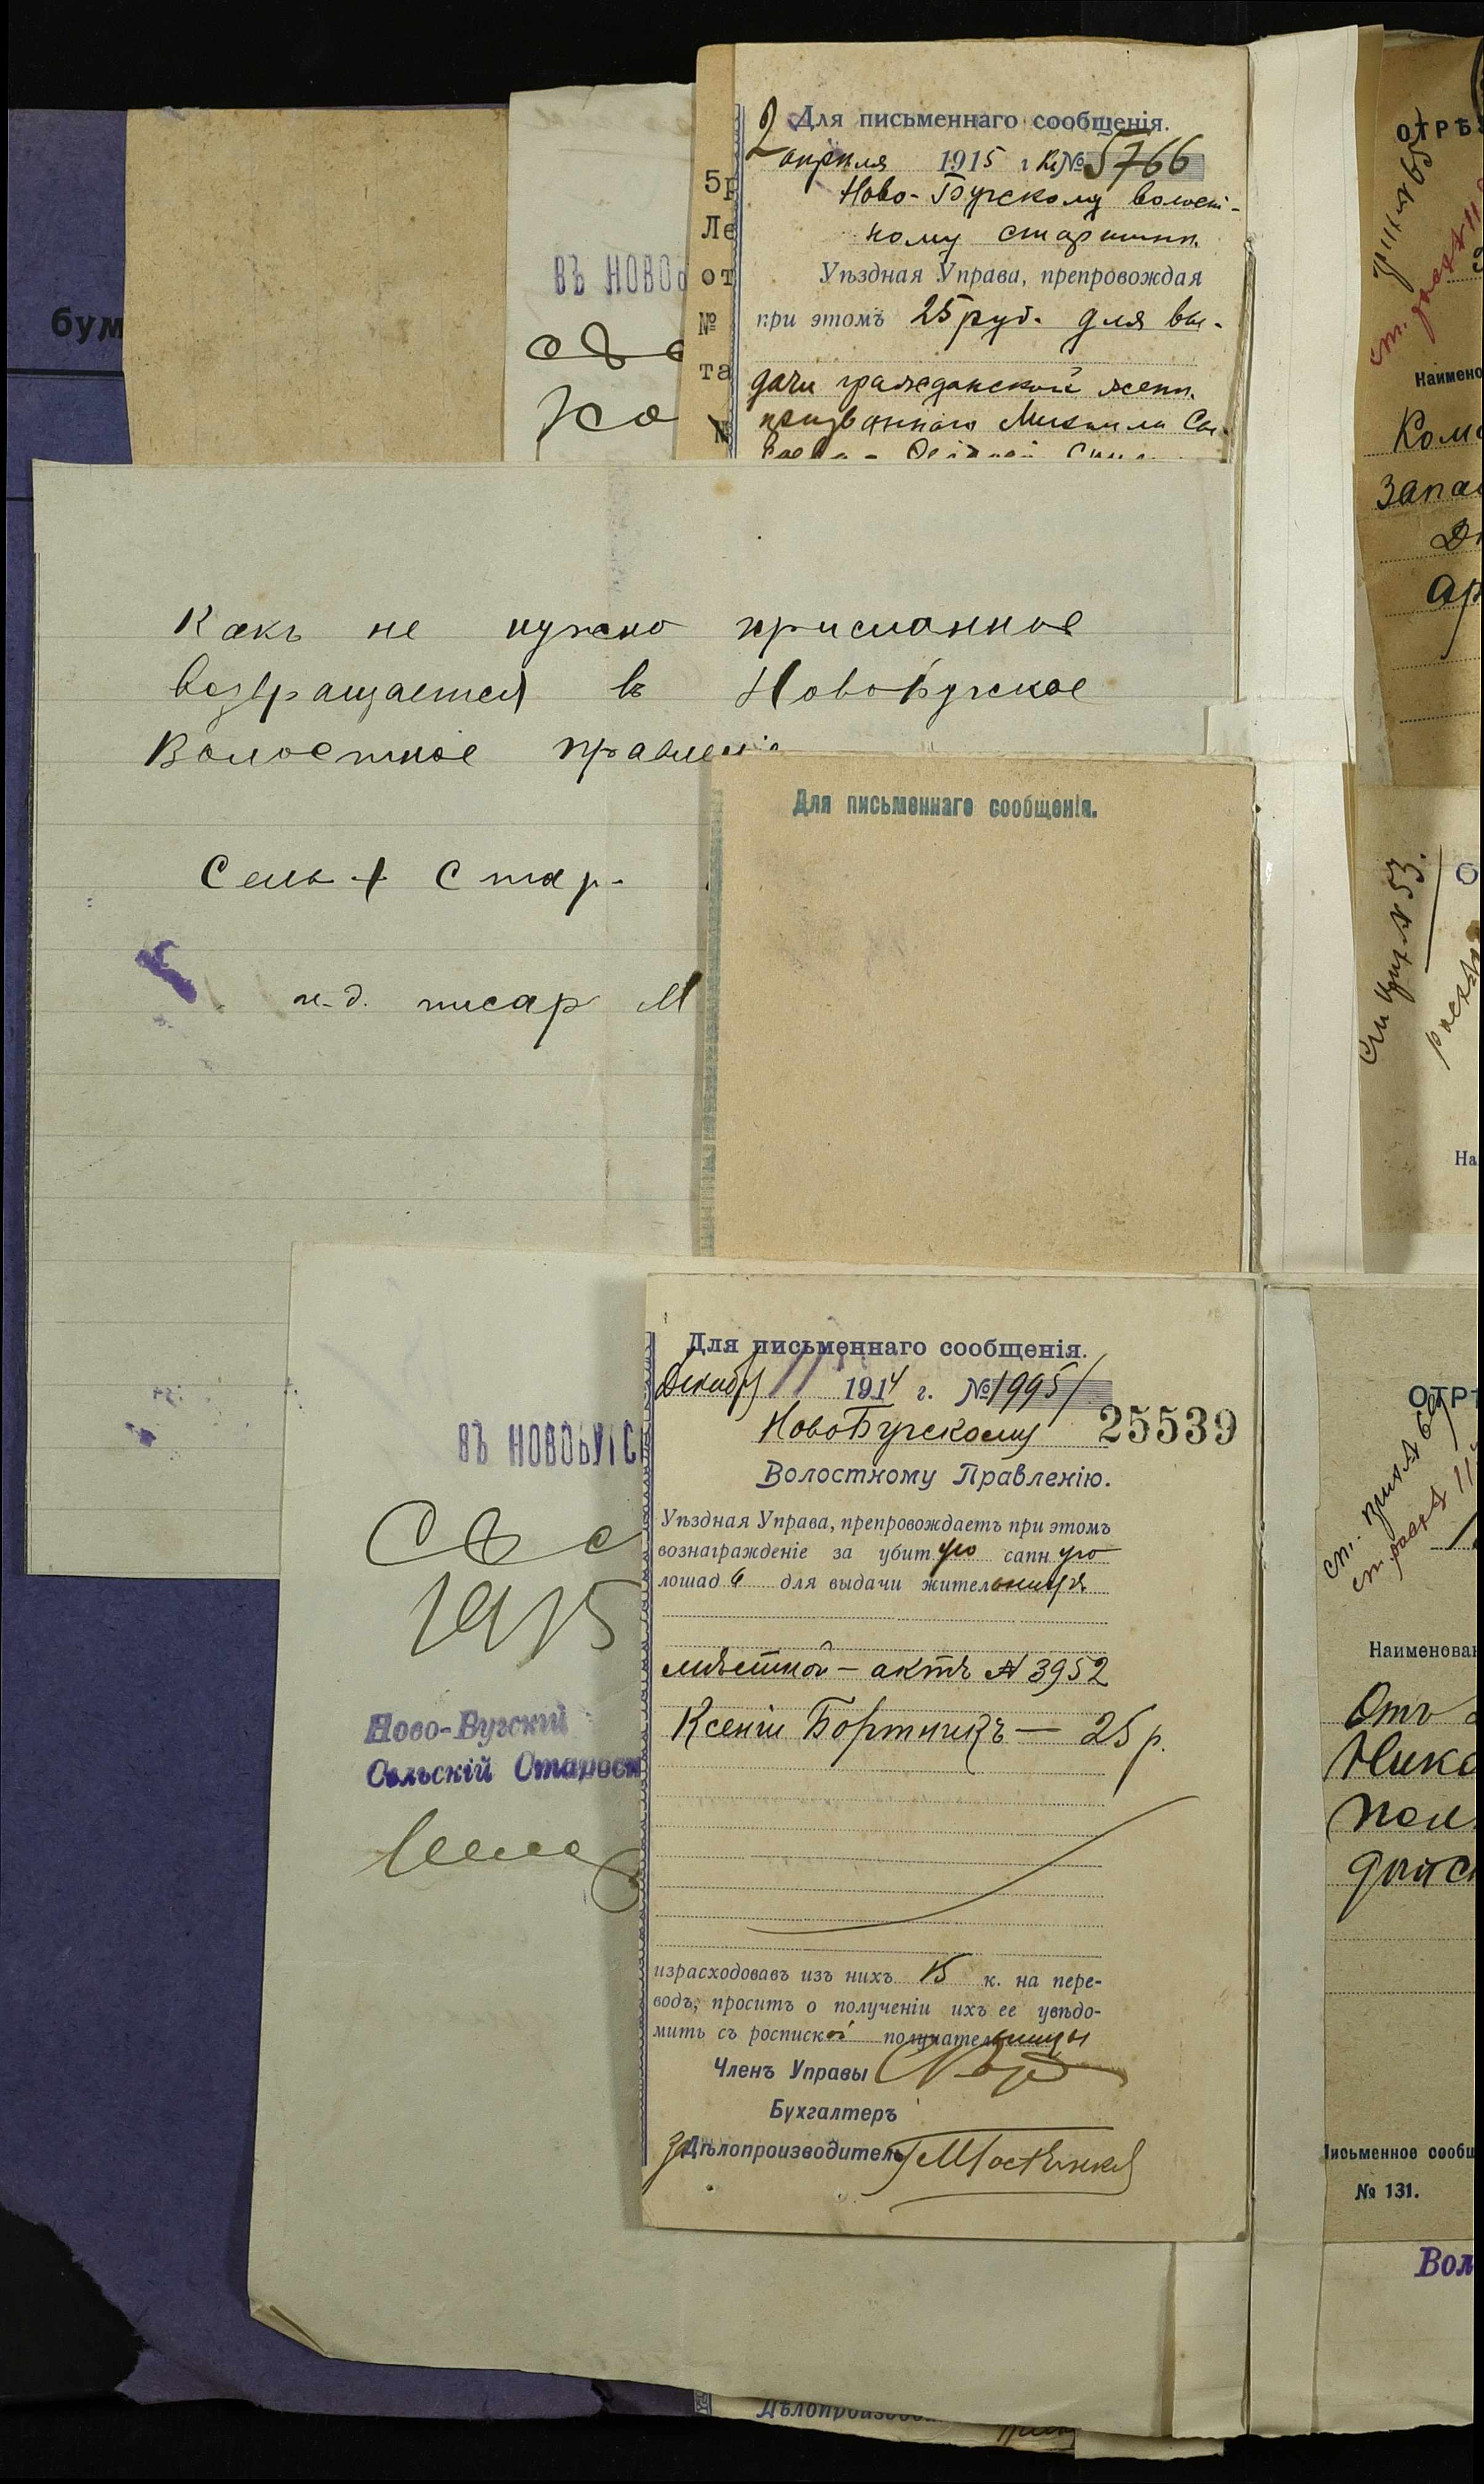 Для письменнаго сообщенія.
2 апреля 1915 г. №5766
Ново-Бугскому волост-
ному старшинѣ.
Уѣздная Управа, препровождая
при этомъ 25 руб. для вы-
дачи гражданской женѣ
призваннаго Михаила
5р
Ле
от
№
та
№
ВЪ НОВОБ
бум
Какъ не нужно присланное
возвращается въ Новобугское
Волостное правленіе
Сельс Стар.
и.д. писар М
Для письменнаго сообщенія.
ВЪ НОВОБУГС
1915
Ново-Бугскій
Сельскій Старост
Для письменнаго сообщенія.
Декабр 11 1914 г. №19951
25539
НовоБугскому
Волостному Правленію.
Уѣздная Управа, препровождаетъ при этомъ
вознагражденіе за убитую сапную
лошадь для выдачи жительницѣ
мѣстной - актъ № 3952
Ксеніи Бортникъ — 25 р.
израсходовавъ изъ нихъ 15 к. на пере-
водъ, проситъ о полученіи ихъ ее увѣдо-
мить съ роспиской получательницы
Членъ Управы
Бухгалтеръ
за Дѣлопроизводитель
Дѣлопроизвод
ОТРѢ
Наимено
Ком
запа
ар
№ 53.
На
ОТРѢ
Наименован
Отъ
Нико
пол
Письменное сообщ
№ 131.
Вол